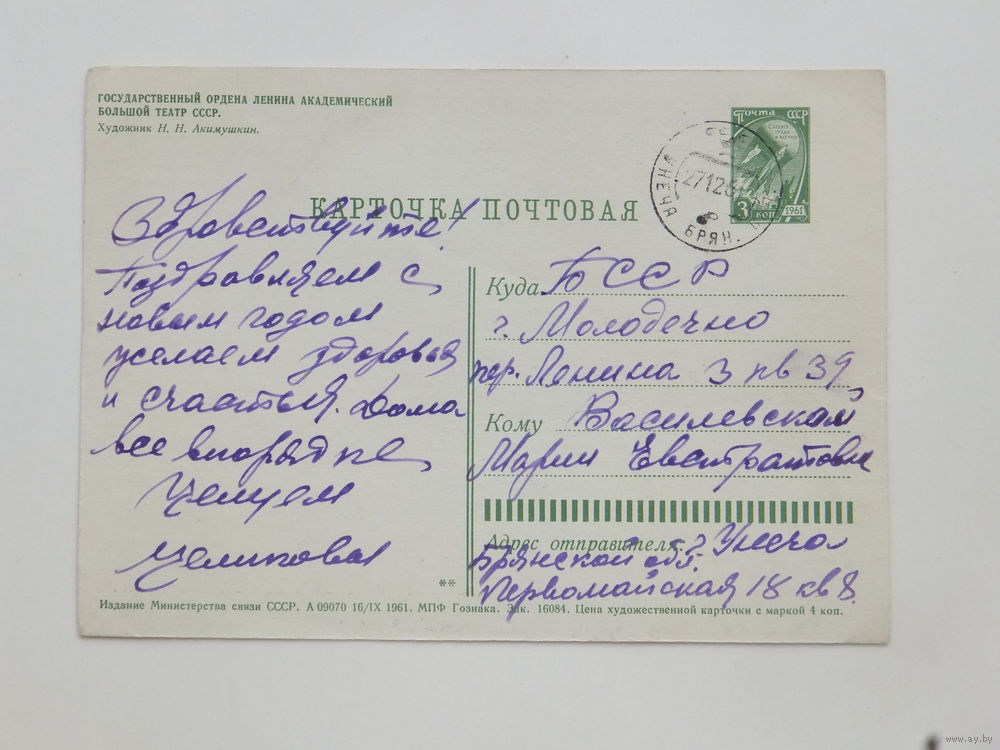 ГОСУДАРСТВЕННЫЙ ОРДЕНА ЛЕНИНА АКАДЕМИЧЕСКИЙ
БОЛЬШОЙ ТЕАТР СССР.
Художник Н. Н. Акимушкин.
Почта СССР
Слава труду и науке
3 коп
1961
УНЕЧА
271261
БРЯН.
КАРТОЧКА ПОЧТОВАЯ
Здравствуйте!
Поздравляем с
новым годом
желаем здоровья
и счастья. Дома
все впорядке,
Целуем
Куда БССР
г. Молодечно
пер. Ленина 3 кв 39
Кому Василевской
Марии Евстратовне
Адрес отправителя: г Унеча
Брянской обл.
Первомайская 18 кв 8.
**
Издание Министерства связи СССР. А 09070 16/IX 1961. МПФ Гознака. Зак. 16084. Цена художественной карточки с маркой 4 коп.
www.ay.by